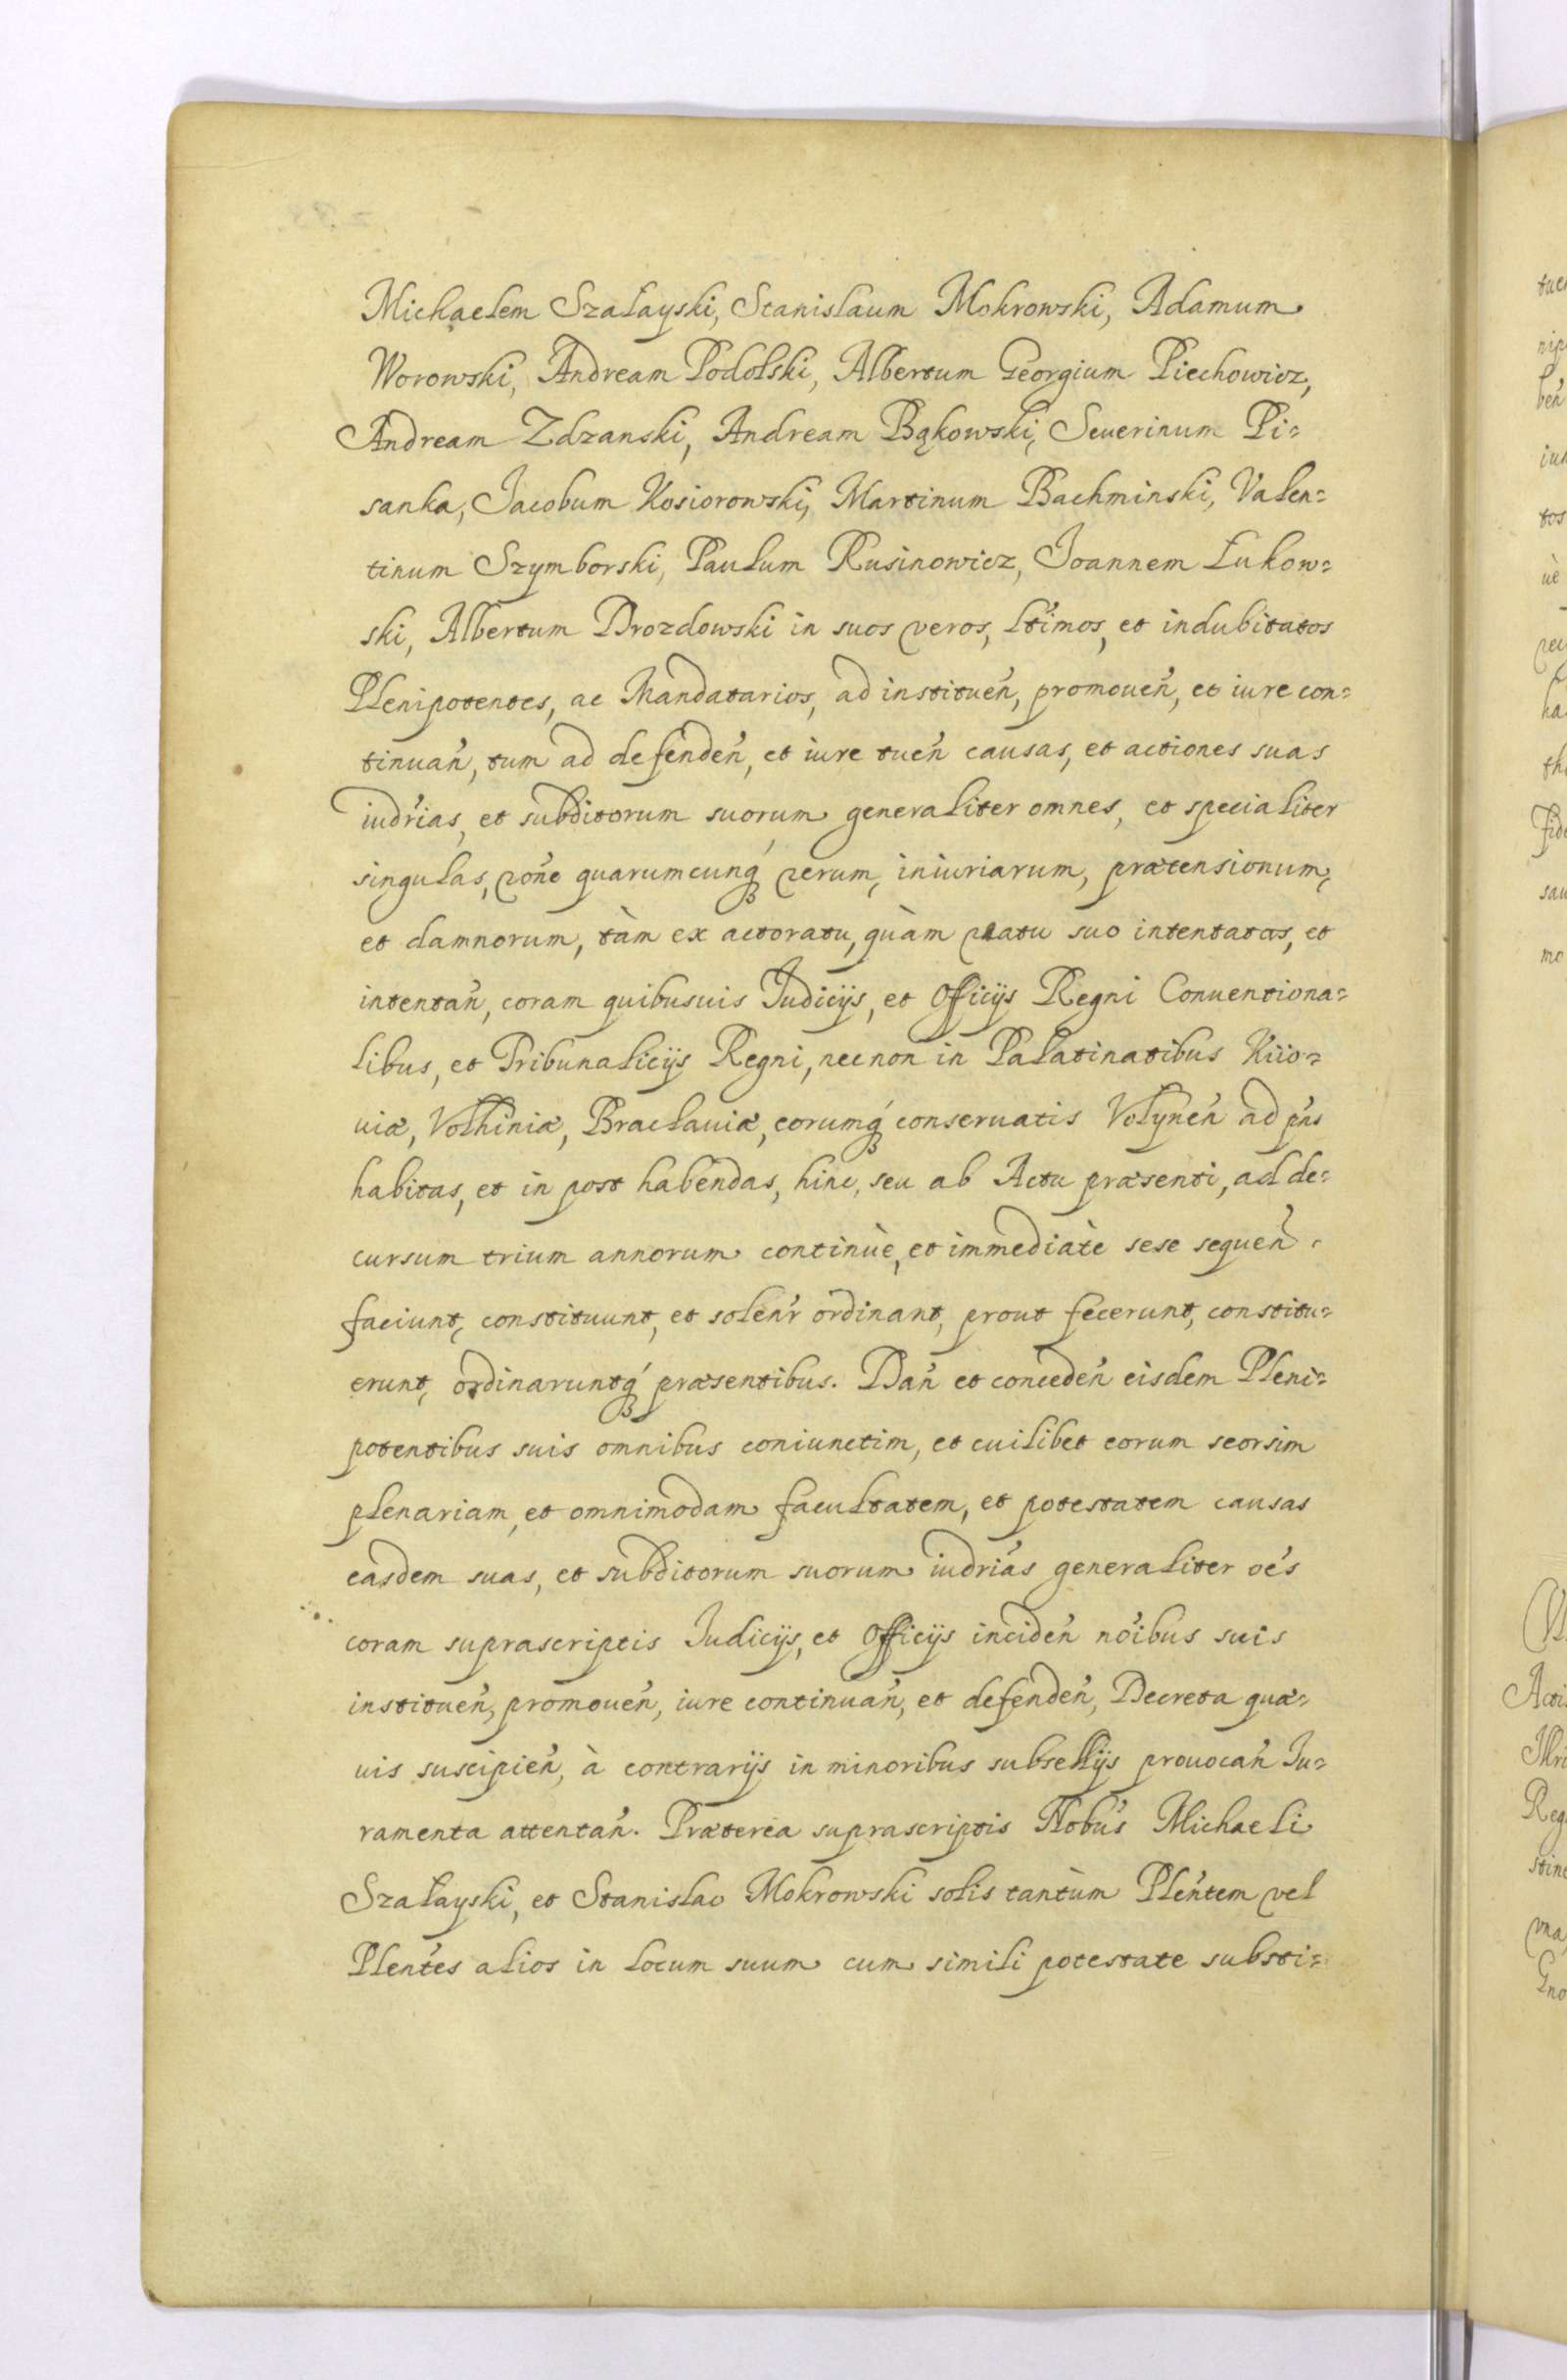 Michaelem Szałayski, Stanislaum Mokrowski, Adamum
Worowski, Andream Podolski, Albertum Georgium Piechowicz,
Andream Zdzanski, Andream Bąkowski, Seuerinum Pi=
sanka, Jacobum Kosiorowski, Martinum Bachminski, Valen=
tinum Szymborski, Paulum Rusinowicz, Joannem Łukow=
ski, Albertum Drozdowski in suos veros, ltimos, et indubitatos
Plenipotentes, ac Mandatarios, ad instituen̄, promouen̄, et iure con=
tinuan̄, tum ad defenden̄, et iure tuen̄ causas, et actiones suas
iudrias, et subditorum suorum generaliter omnes, et specialiter
singulas, rōne quarumcunq́ꝫ rerum, iniuriarum, prætensionum,
et damnorum, tàm ex actoratu, quàm reatu suo intentatas, et
intentan̄, coram quibusuis Judicijs, et Officijs Regni Conuentiona=
libus, et Tribunalicijs Regni, necnon in Palatinatibus Kiio=
uiæ, Volhiniæ, Bracłauiæ, eorumq́ꝫ conseruatis Volynen̄ ad pn̄s
habitas, et in post habendas, hinc, seu ab Actu præsenti, ad de=
cursum trium annorum continuè, et immediatè sese sequen̄.
faciunt, constituunt, et solen̄r ordinant, prout fecerunt, constitu=
erunt, ordinaruntq́ꝫ præsentibus. Dan̄ et conceden̄ eisdem Pleni=
potentibus suis omnibus coniunctim, et cuilibet eorum seorsim
plenariam, et omnimodam facultatem, et potestatem causas
easdem suas, et subditorum suorum iudrias generaliter oēs
coram suprascriptis Judicijs, et Officijs inciden̄ nōibus suis
instituen̄, promouen̄, iure continuan̄, et defenden̄, Decreta quæ=
uis suscipien̄, à contrarijs in minoribus subsellijs prouocan̄ Ju=
ramenta attentan̄. Præterea suprascriptis Nobūs Michaeli
Szałayski, et Stanislao Mokrowski solis tantùm Plēntem vel
Plēntes alios in locum suum cum simili potestate substi=